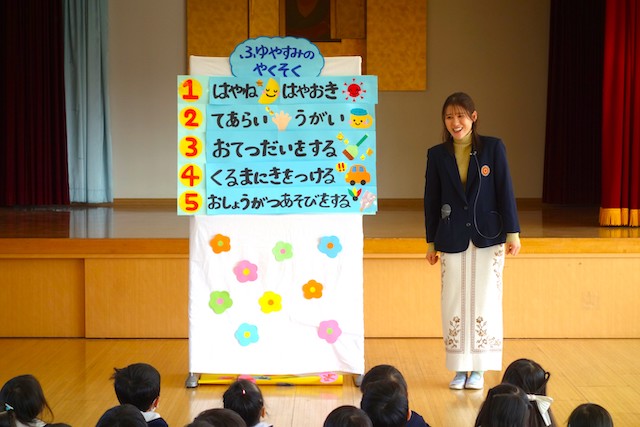 ふゆやすみの
やくそく
1 はやね はやおき
2 てあらい うがい
3 おてつだいをする
4 くるまにきをつける!!
5 おしょうがつあそびをする